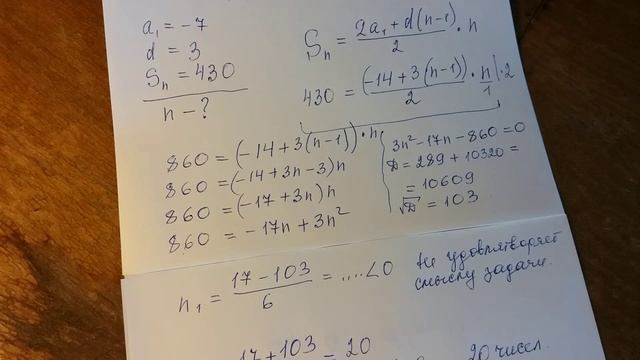 a₁ = -7
d = 3
Sₙ = 430
n - ?
Sₙ = (2a₁ + d(n-1))/2 · n
430 = (-14 + 3(n-1))/2 · n/1 |·2
860 = (-14 + 3(n-1)) · n
860 = (-14 + 3n - 3)n
860 = (-17 + 3n)n
860 = -17n + 3n²
3n² - 17n - 860 = 0
D = 289 + 10320 =
= 10609
√D = 103
n₁ = (17 - 103)/6 = ....< 0
не удовлетворяет
смыслу задачи.
17 + 103
= 20
20 чисел.